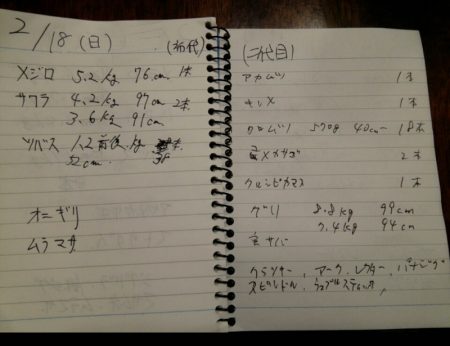 2/18(日)
(初代)
メジロ 5.2kg 76cm 1本
サワラ 4.2kg 97cm 2本
3.6kg 91cm
ツバス 1.2前後kg
52cm
オニギリ
ムラマサ
(二代目)
アカムツ 1本
キンメ 1本
クロムツ 570g 40cm 18本
メカサゴ 2本
クロシビカマス 1本
ブリ 8.8kg 99cm
7.4kg 94cm
サバ
クランサー、アーク、レクター、
スピンドル、